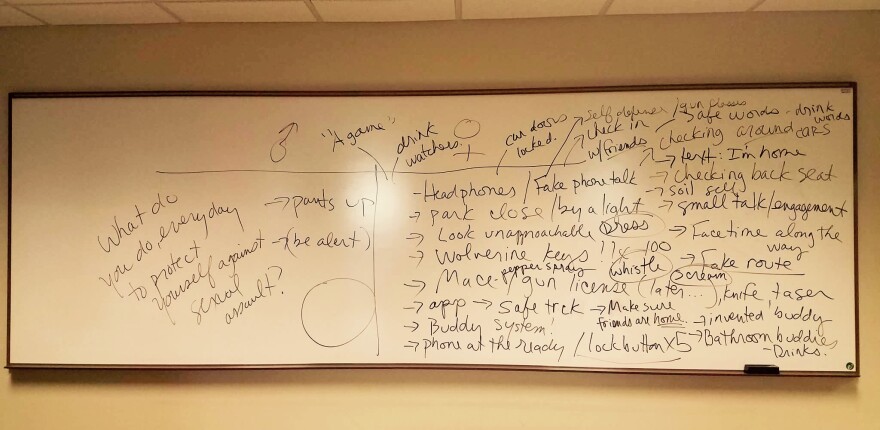 "A game"
What do
you do, everyday
to protect
yourself against
sexual
assault?
→ pants up
→ (be alert)
drink
watchers.
car doors
locked.
self defense / gun classes
check in
w/friends
safe words - drink
words
checking around cars
→ text: I'm home
- Headphones / Fake phone talk
→ checking back seat
→ soil self
→ park close / by a light
→ small talk/engagement
→ Look unapproachable
Dress
→ Facetime along the
way
→ Wolverine keys !! x 100
→ Fake route
→ Mace / pepper spray
whistle
scream
gun license (later...), knife, taser
→ app → Safe trek
→ Make sure
friends are home.
→ invented buddy
→ Buddy system!
→ Bathroom buddies
- Drinks.
→ phone at the ready / Lock button x5